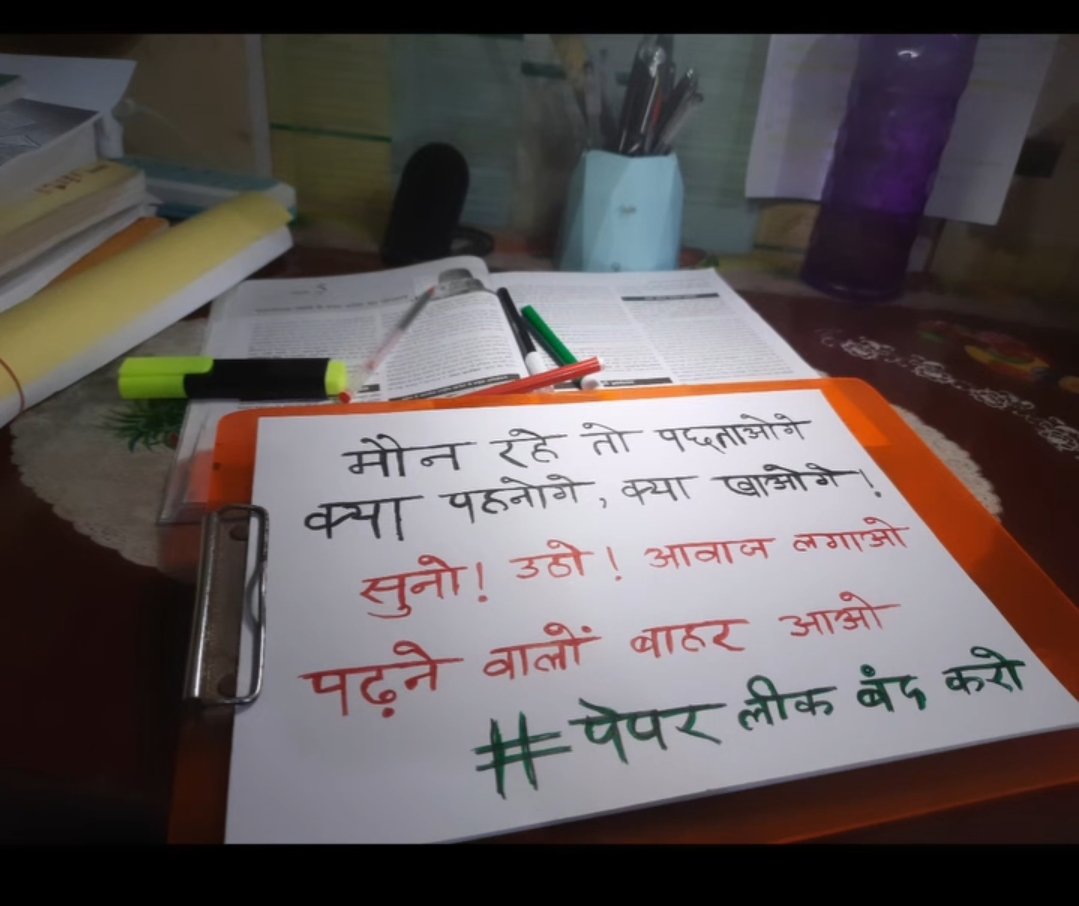 मौन रहे तो पछताओगे
क्या पहनोगे, क्या खाओगे!
सुनो! उठो! आवाज लगाओ
पढ़ने वालों बाहर आओ
#पेपर लीक बंद करो